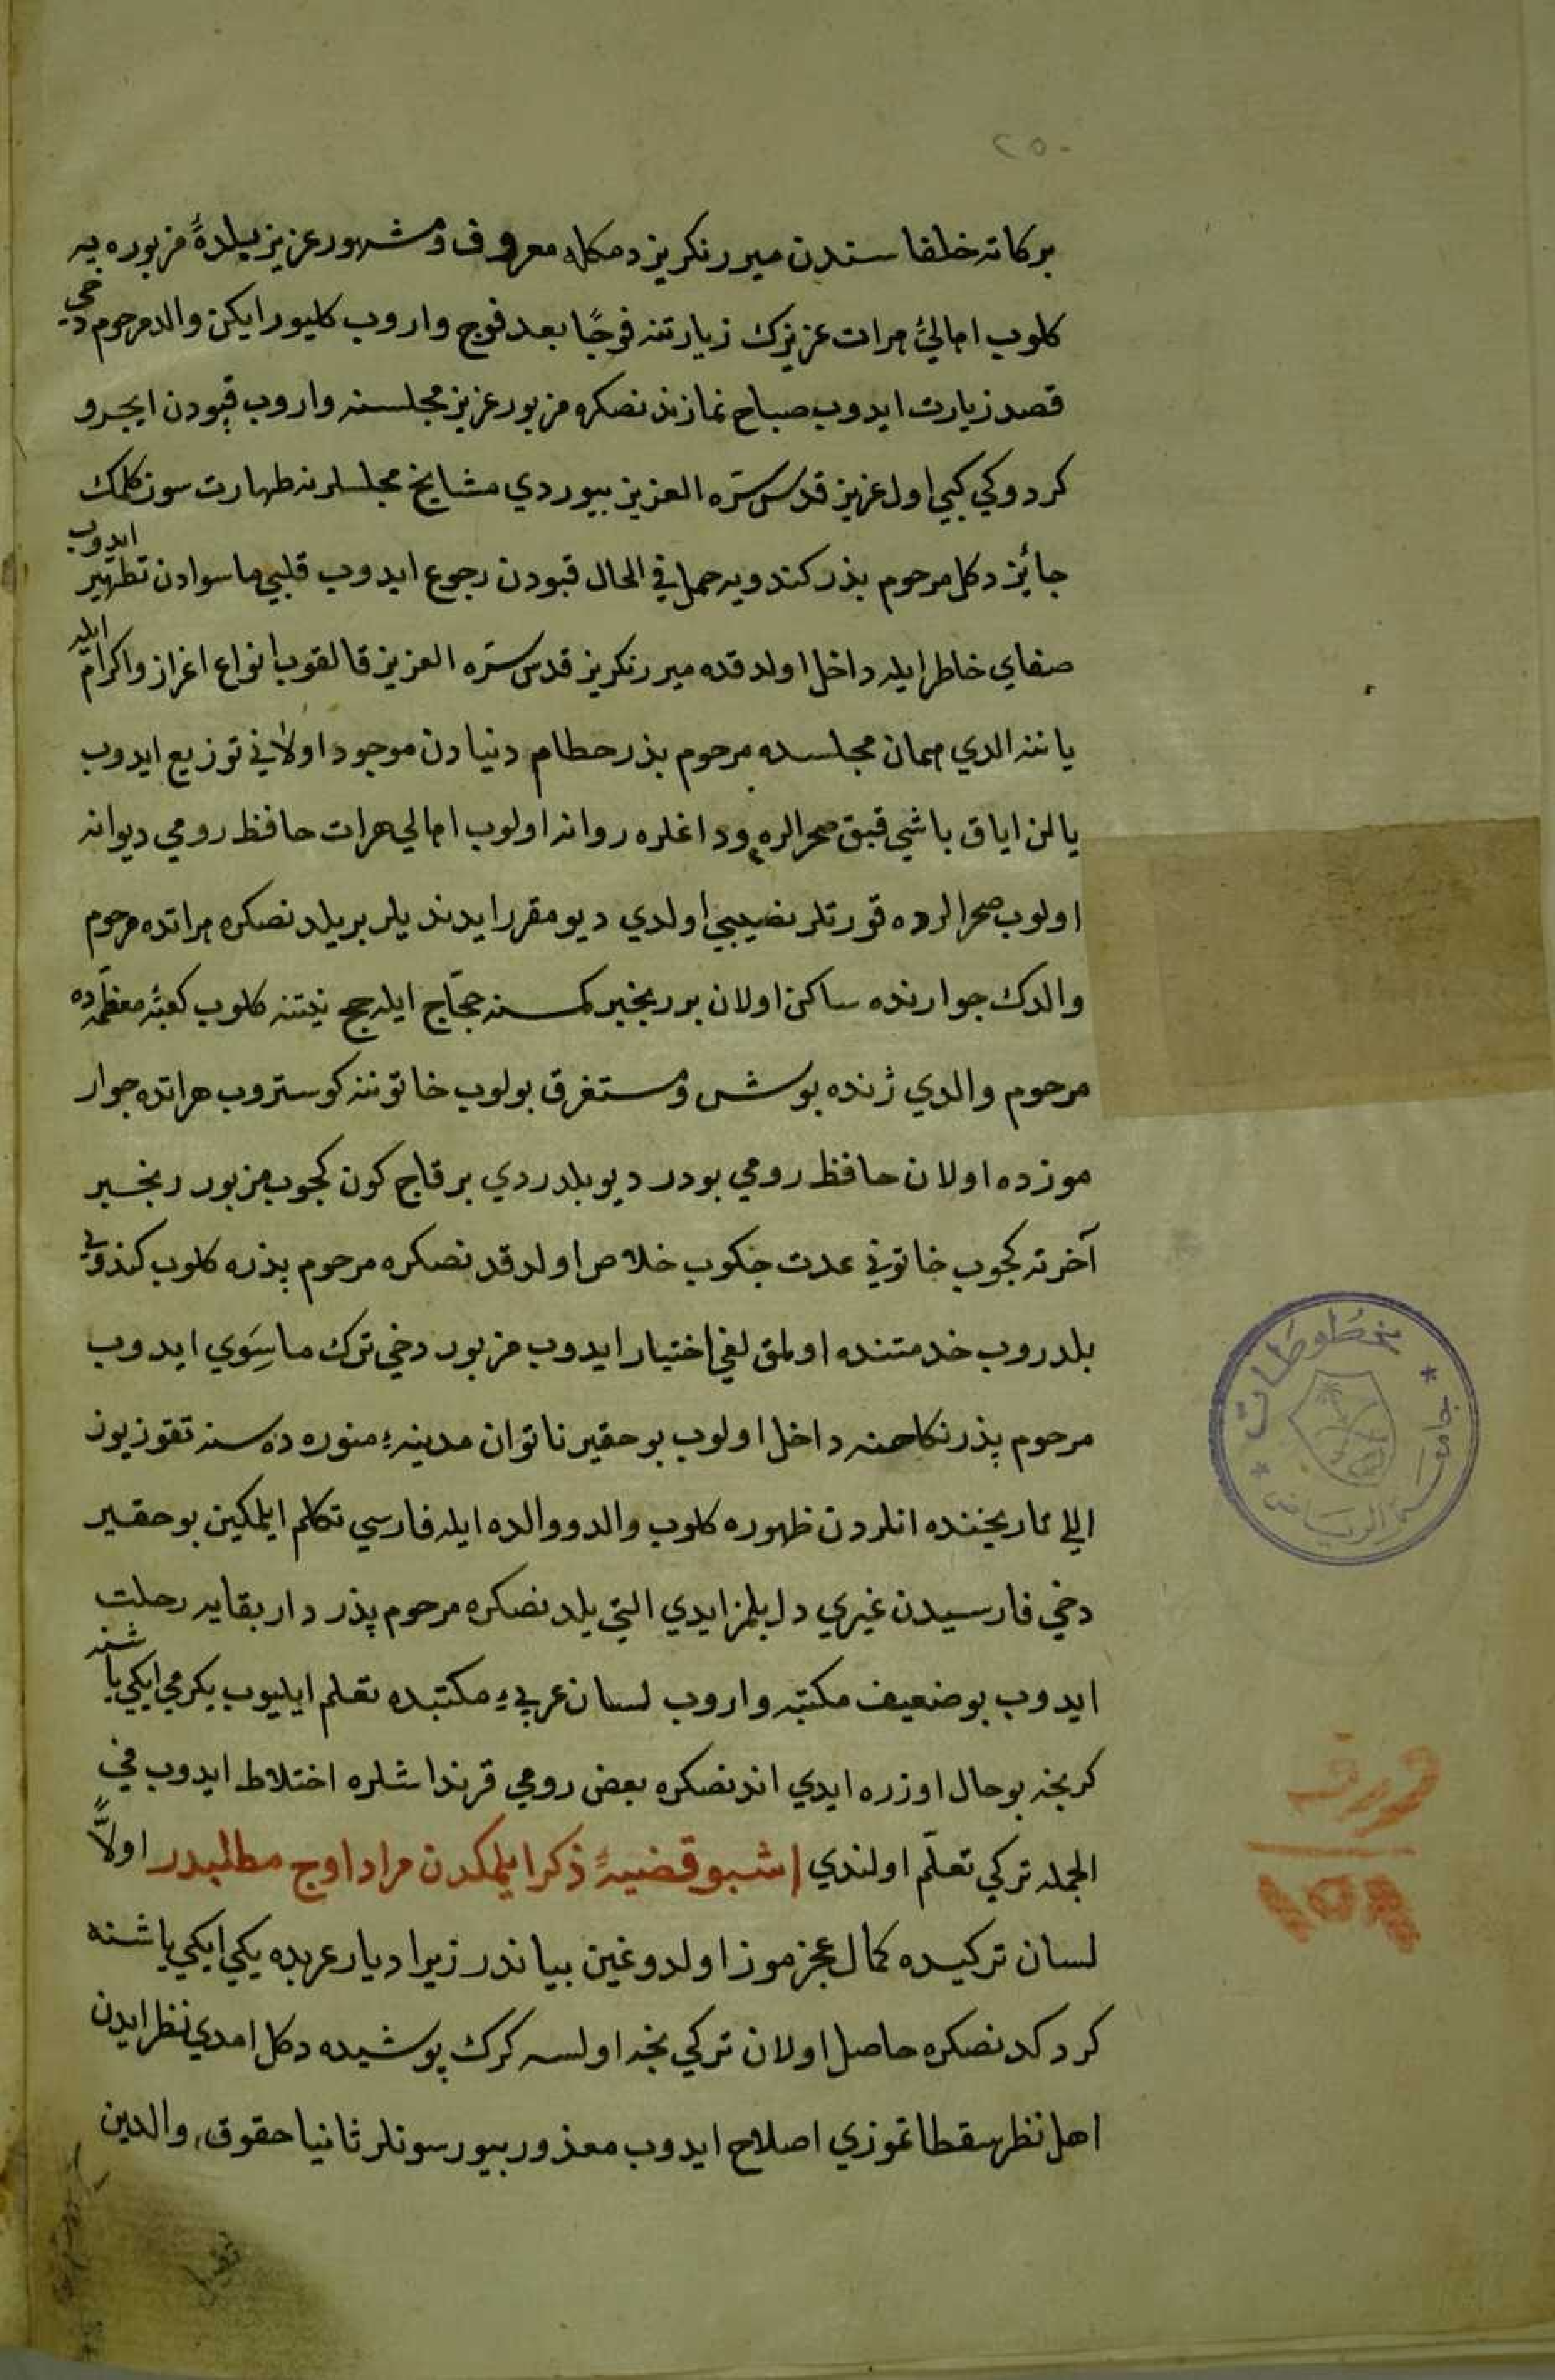 ٢٥٠
بركاته خلفا سندن ميررنكريز دمكله معروف ومشهور عزيز بلدهٔ مزبوره يه
كلوب اهالئ هرات عزيزك زيارتنه فوجًا بعد فوج واروب كليورايكن والد مرحوم دخي
قصد زيارت ايدوب صباح نمازندنصكره مزبور عزيز مجلسنه واروب قپودن ايجرو
كردوكي كبي اول عزيز قدس سرّه العزيز بيوردي مشايخ مجلسلرينه طهارت سوز كلمك
جائز دكل مرحوم پذر كندويه حمل في الحال قپودن رجوع ايدوب قلبي ماسوادن تطهير ايدوب
صفاي خاطر ايله داخل اولدقده ميررنكريز قدس سرّه العزيز قالقوب انواع اعزاز واكرام ايله
ياننه الدي همان مجلسده مرحوم پذر حطام دنيادن موجود اولاني توزيع ايدوب
يالن اياق باشي قبق صحرالره وداغلره روانه اولوب اهالي هرات حافظ رومي ديوانه
اولوب صحرالرده قورتلر نصيبي اولدي ديو مقرر ايدنديلر بر يلدنصكره هراتده مرحوم
والدك جوارنده ساكن اولان بر رنجبر كمسنه حجّاج ايله حج نيتنه كلوب كعبهٔ معظمه ده
مرحوم والدي ژنده پوش ومستغرق بولوب خاتوننه كوستروب هراتده جوار
موزده اولان حافظ رومي بودر ديو بلدردي بر قاج كون كجوب مزبور رنجبر
آخرته كجوب خاتوني عدت جكوب خلاص اولدقدنصكره مرحوم پذره كلوب كندويي
بلدروب خدمتنده اولمق لغي اختيار ايدوب مزبور دخي ترك ماسِوَي ايدوب
مرحوم پذر نكاحنه داخل اولوب بو حقير ناتوان مدينهء منوره ده سنه تقوزيوز
اللي تاريخنده انلردن ظهوره كلوب والد ووالده ايله فارسي تكلم ايلمكين بو حقير
دخي فارسيدن غيري دل بلمز ايدي التي يلدنصكره مرحوم پذر دار بقايه رحلت
ايدوب بو ضعيف مكتبه واروب لسان عربيء مكتبده تعلم ايليوب يكرمي ايكي ياشنه
كرنجه بو حال اوزره ايدي اندنصكره بعض رومي قرنداشلره اختلاط ايدوب في
الجمله تركي تعلّم اولندي اشبو قضيهً ذكر ايلمكدن مراد اوج مطلبدر اولاً
لسان تركيده كمال عجزموز اولدوغين بياندر زيرا ديار عربده يكرمي ايكي ياشنه
كردكدنصكره حاصل اولان تركي نجه اولسه كرك پوشيده دكل امدي نظر ايدن
اهل نظر سقطاتموزي اصلاح ايدوب معذور بيورسونلر ثانيا حقوق والدين
مخطوطات
جامعة الرياض
ورق